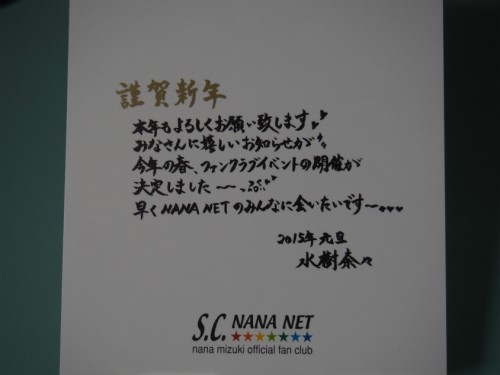 謹賀新年
本年もよろしくお願い致します♥♥
みなさんに嬉しいお知らせが
今年の春、ファンクラブイベントの開催が
決定しました〜〜
早くNANA NETのみんなに会いたいです〜♥♥♥
2015年元旦
水樹奈々
S.C. NANA NET
★★★★★★★
nana mizuki official fan club